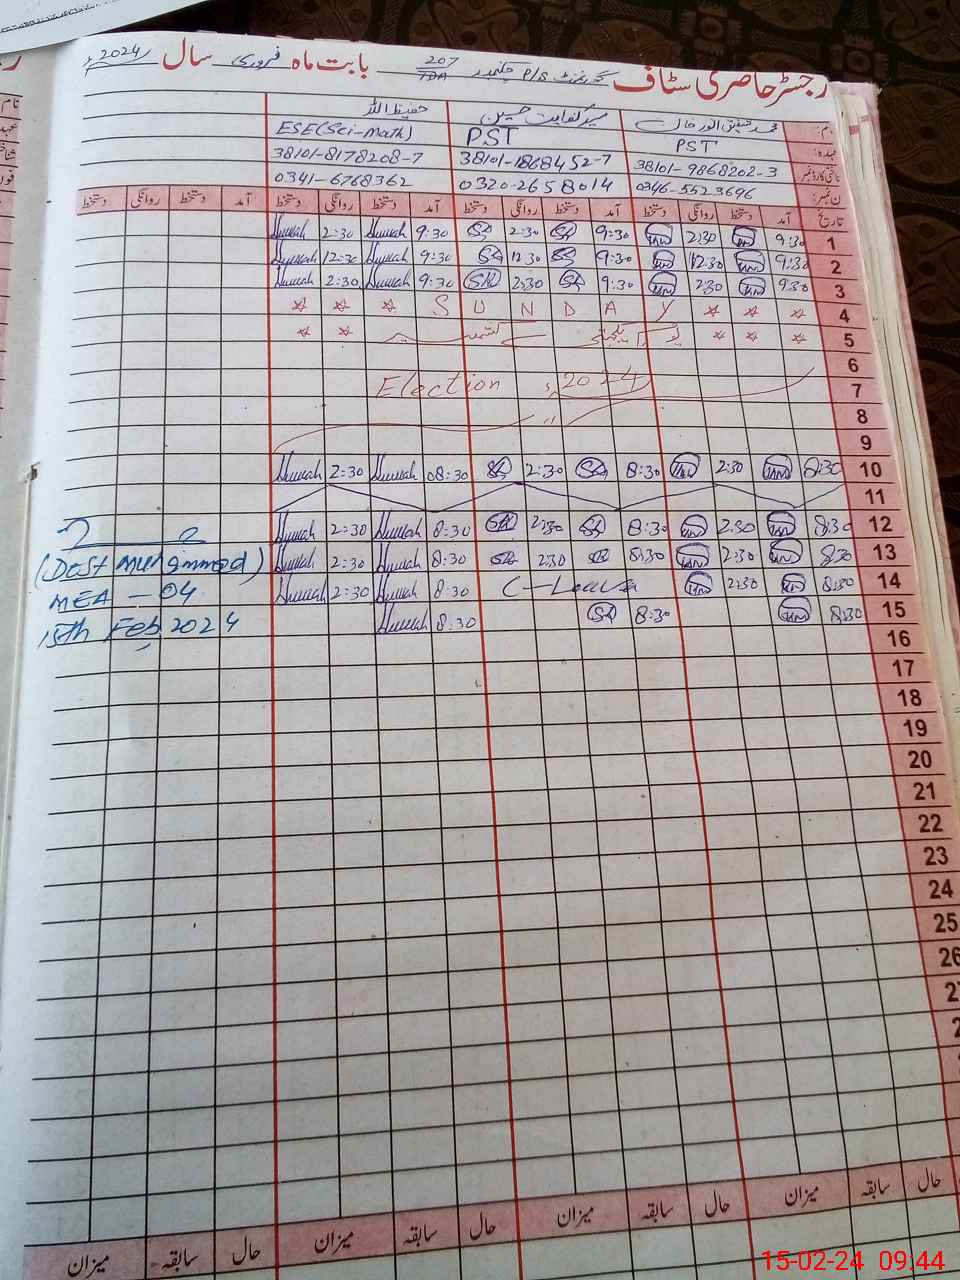 رجسٹر حاضری سٹاف گورنمنٹ P/S چکنمبر 207/TDA بابت ماہ فروری سال 2024ء
نام: محمد شفیق انور خان سید کفایت حسین حفیظ اللہ
عہدہ: PST PST ESE(Sci-Math)
شناختی کارڈ نمبر 38101-9868202-3 38101-1868452-7 38101-8178208-7
فون نمبر: 0346-5523696 0320-2658014 0341-6768362
تاریخ آمد دستخط روانگی دستخط آمد دستخط روانگی دستخط آمد دستخط روانگی دستخط آمد دستخط روانگی دستخط
1 9:30 2:30 9:30 SK 2:30 SK 9:30 2:30
2 9:30 12:30 9:30 SK 12:30 SK 9:30 12:30
3 9:30 2:30 9:30 SK 2:30 SK 9:30 2:30
4 * * * S U N D A Y * * *
5 * * * یوم یکجہتی کشمیر * *
6
7 Election 2024ء
8 "
9
10 8:30 2:30 8:30 SK 2:30 SK 08:30 2:30
11
12 8:30 2:30 8:30 SK 2:30 SK 8:30 2:30
13 8:30 2:30 8:30 SK 2:30 SK 8:30 2:30
14 8:30 2:30 C-Leave 8:30 2:30
15 8:30 8:30 SK 8:30
(Dost Muhammad)
MEA - 04
15th Feb 2024
16
17
18
19
20
21
22
23
24
25
26
حال سابقہ میزان حال سابقہ میزان حال سابقہ میزان حال سابقہ میزان
15-02-24 09:44